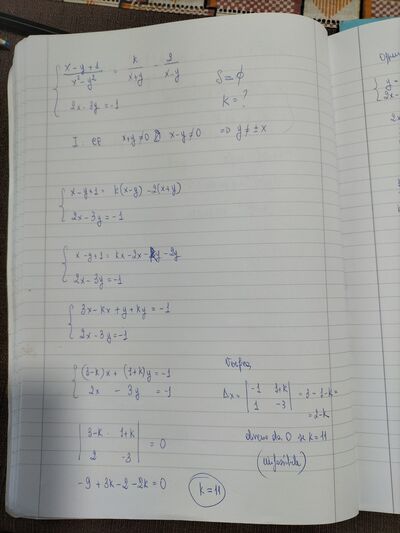 { (x-y+1)/(x²-y²) = k/(x+y) - 2/(x-y)
2x-3y=-1
S=∅
K=?
I. x+y≠0 x-y≠0 => y≠±x
{ x-y+1= k(x-y)-2(x+y)
2x-3y=-1
{ x-y+1= kx-2x-ky-2y
2x-3y=-1
{ 3x-kx+y+ky=-1
2x-3y=-1
{ (3-k)x+(1+k)y=-1
2x - 3y =-1
|3-k 1+k|
|2 -3| =0
-9+3k-2-2k=0
K=11
Verifica
Δx= |-1 1+k|
|1 -3| =3-1-k=
=2-k
diverso da 0 se k=11
(impossibile)